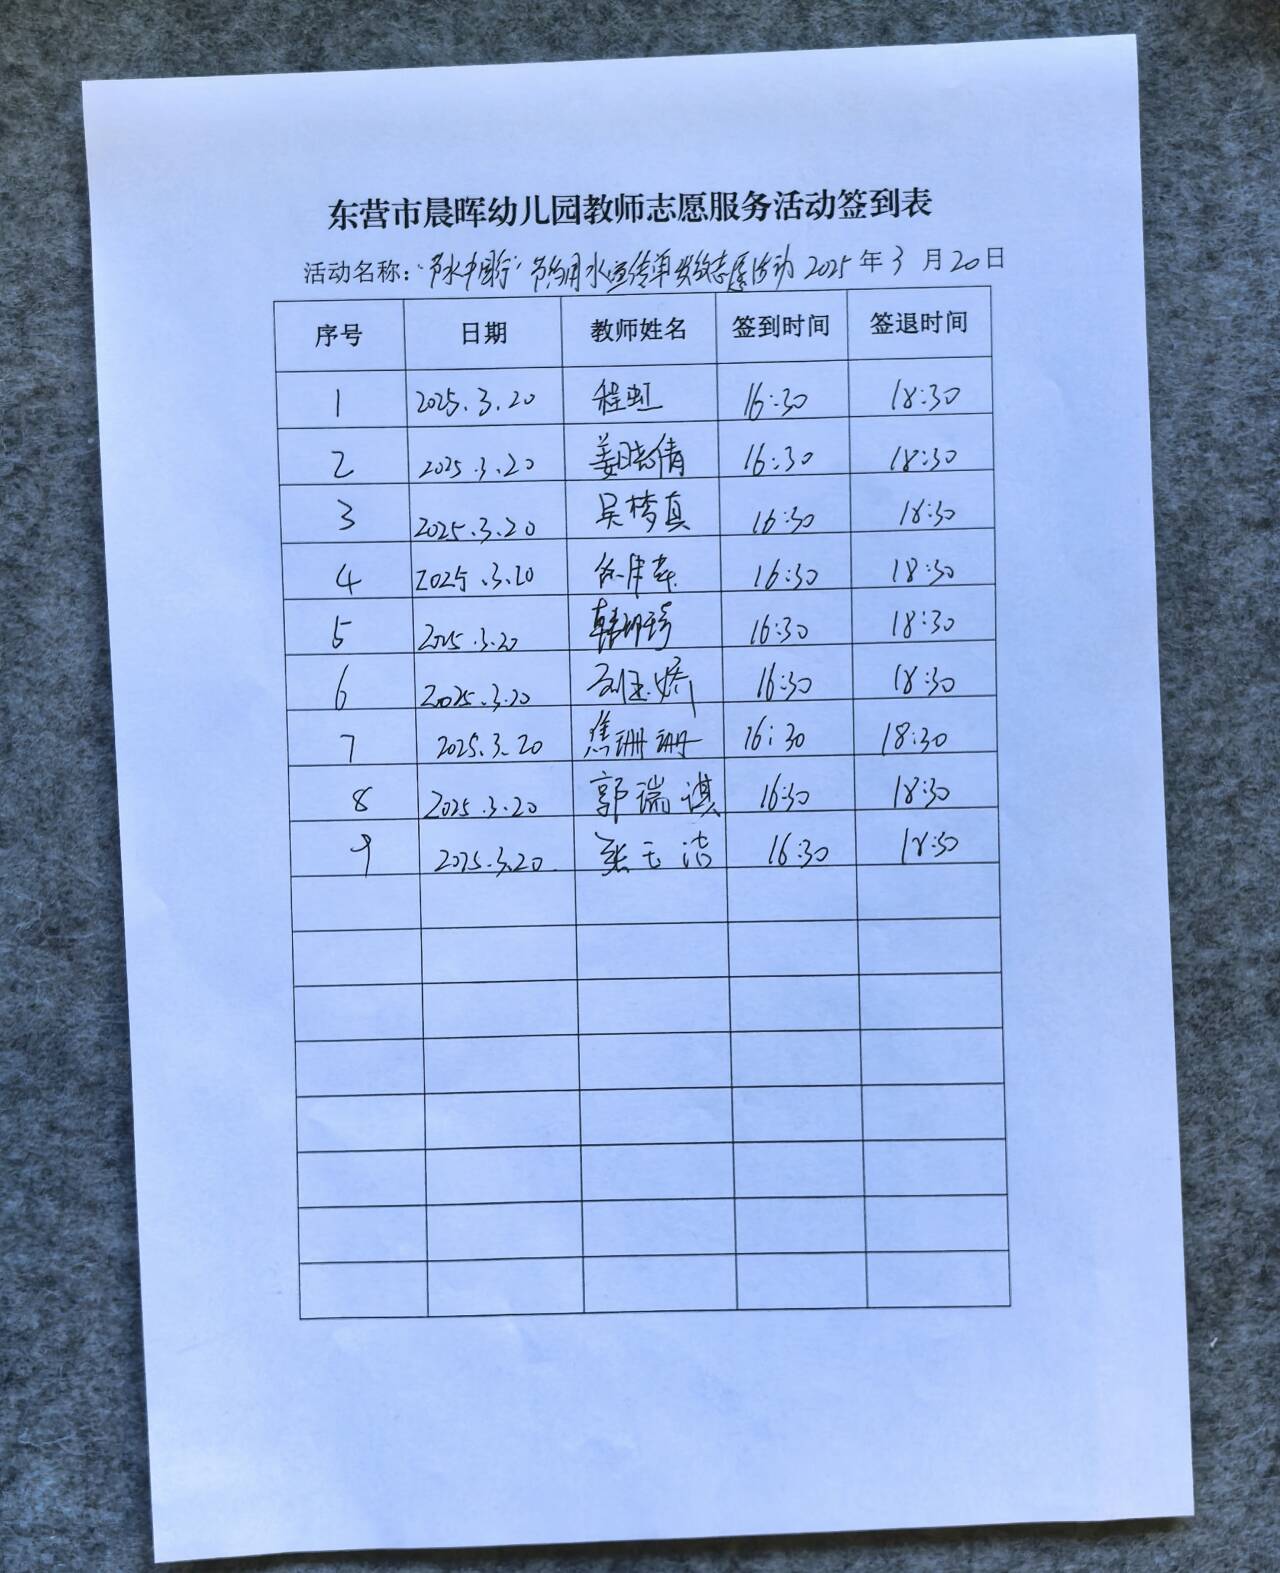 东营市晨晖幼儿园教师志愿服务活动签到表
活动名称："节水中国行"节约用水宣传单发放志愿活动 2025年3月20日
序号 日期 教师姓名 签到时间 签退时间
1 2025.3.20 程虹 16:30 18:30
2 2025.3.20 姜晓倩 16:30 18:30
3 2025.3.20 吴梦真 16:30 18:30
4 2025.3.20 16:30 18:30
5 2025.3.20 韩 16:30 18:30
6 2025.3.20 刘玉娇 16:30 18:30
7 2025.3.20 焦珊珊 16:30 18:30
8 2025.3.20 郭瑞淇 16:30 18:30
9 2025.3.20. 张玉洁 16:30 18:30